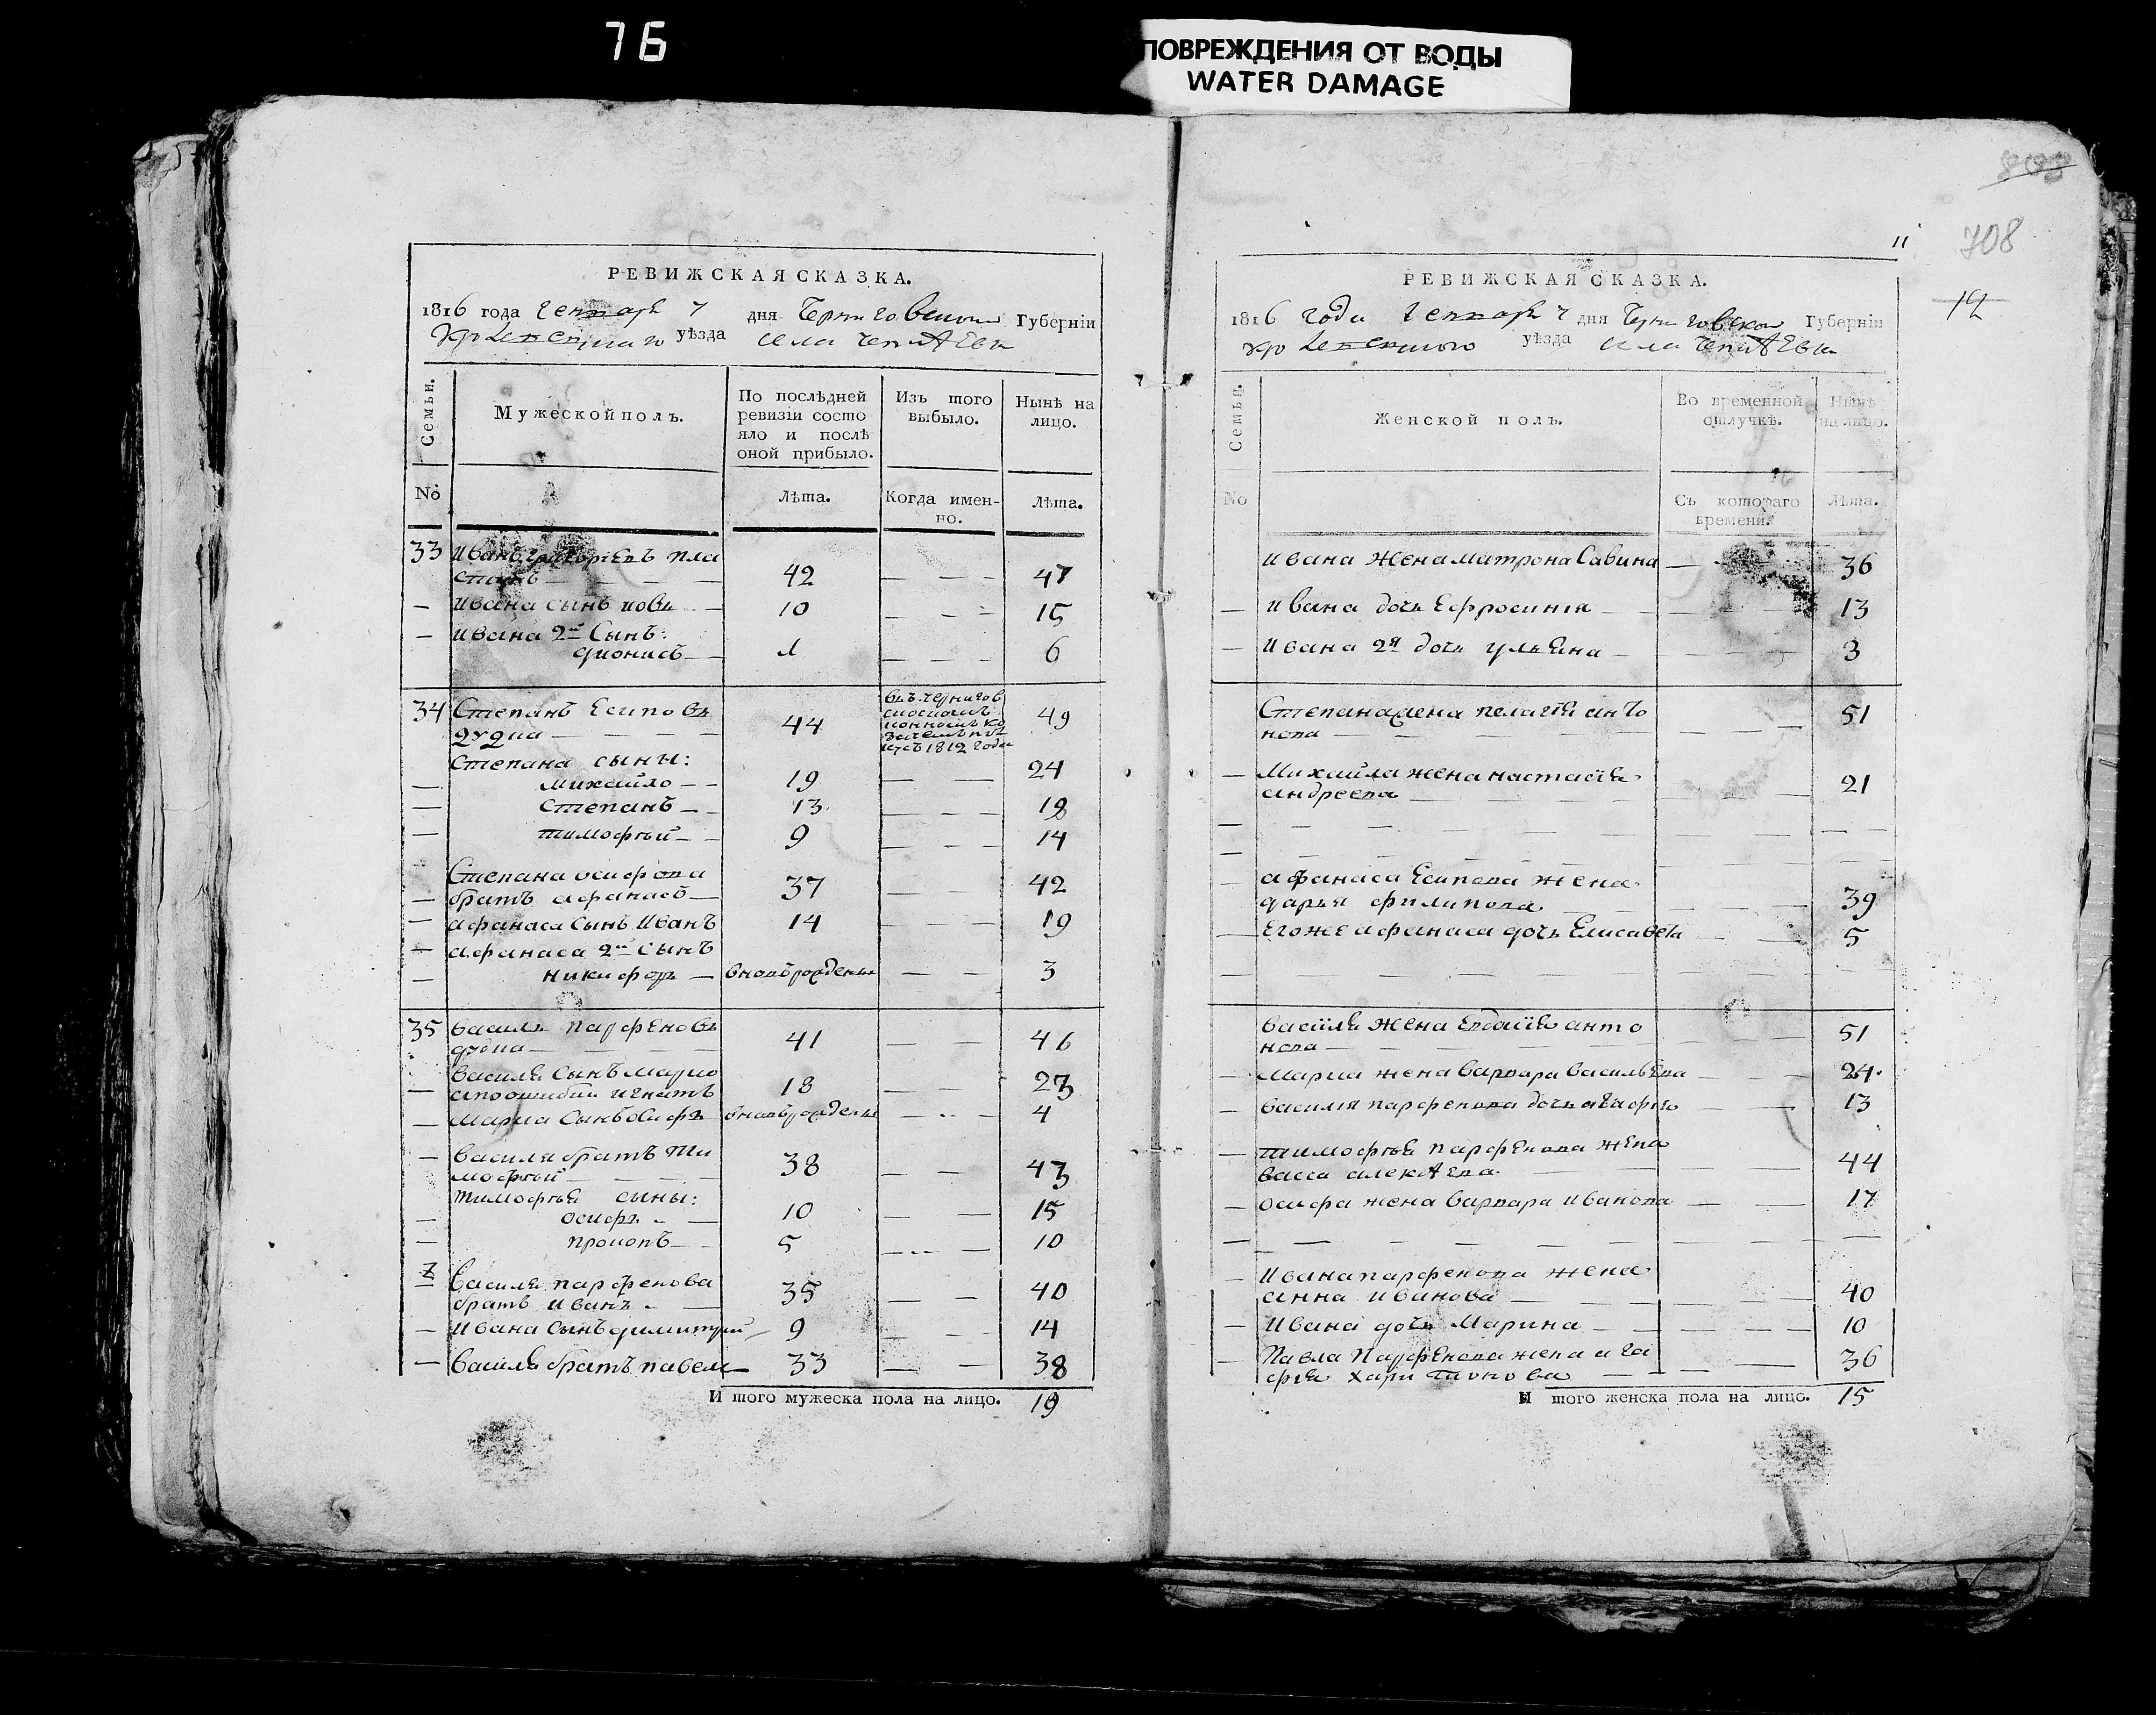 76
ПОВРЕЖДЕНИЯ ОТ ВОДЫ
WATER DAMAGE
РЕВИЖСКАЯ СКАЗКА.
1816 года генваря 7 дня Черниговской Губернїи
уѣзда села
Семьи.
Мужеской полъ.
По послѣдней
ревизїи состо
яло и послѣ
оной прибыло.
Изъ того
выбыло.
Нынѣ на
лицо.
№
Лѣта.
Когда имен-
но.
Лѣта.
33 Иванъ григорїевъ пла
42 47
Ивана сынъ иовъ 10 15
Ивана 2й Сынъ:
дионисъ 1 6
34 Степанъ Есиповъ
44 49
1812 года
Степана сыны: 24
михайло 19
степанъ 13 18
тимофѣй 9 14
Степана осифова
братъ афанасъ 37 42
афанаса сынъ Иванъ 14 19
афанаса 2й сынъ
никифоръ вновьрожденъ 3
35 василь парфеновъ
41 46
василя Сынъ марко
игнатъ 18 23
марка Сынъ осифъ вновьрожденъ 4
василя братъ ти
мофѣй 38 43
тимофѣя сыны:
осифъ 10 15
прокопъ 5 10
василя парфенова
братъ иванъ 35 40
ивана сынъ димитрий 9 14
василя братъ павелъ 33 38
И того мужеска пола на лицо. 19
11
708
12
РЕВИЖСКАЯ СКАЗКА.
1816 года генваря 7 дня Черниговской Губернїи
уѣзда села
Семьи.
Женской полъ.
Во временной
отлучкѣ.
Нынѣ
на лицо.
№
Съ котораго
времени.
Лѣта.
Ивана жена матрона Савина 36
Ивана дочь Ефросинїя 13
Ивана 2я дочь ульяна 3
Степана жена пелагїя анто
нова 51
Михайла жена настасїя
андреева 21
афанаса Есипова жена
дарья филипова 39
Егоже афанаса дочь Елисавета 5
василя жена Евдокїя анто
нова 51
Марка жена варвара васильева 24
василїя парфенова дочь агафїя 13
тимофѣя парфенова жена
васса алексѣева 44
осифа жена варвара иванова 17
Ивана парфенова жена
анна иванова 40
Ивана дочь Марина 10
Павла Парфенова жена ага
фїя харитонова 36
И того женска пола на лицо. 15